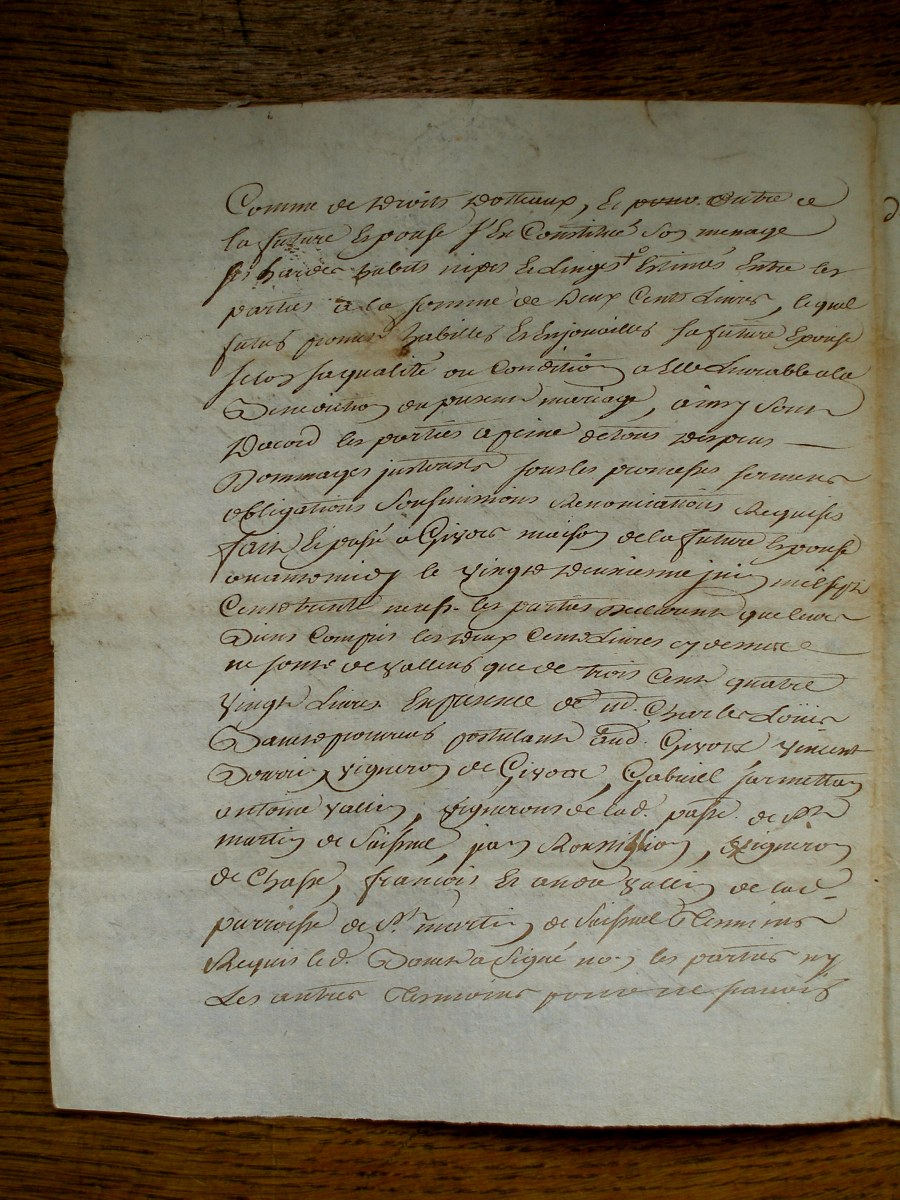 Comme de droits dotteaux, Et pour Outre ce
la future Epouse s'Est Constitué Son menage
ses hardes habits nipes Et linges Estimés Entre les
parties a la somme de deux Cents Livres, lequel
futur habillés Et Enjouailles sa future Epouse
selon sa qualité ou Condition a Elle Livrable a la
Dissolution du present mariage, ainsy sont
Dacord les parties a peine de tous despens
Dommages sous les promesses sermens
obligations Soubmissions Renonciations Requises
fait Et passé a Givors maison de la future Epouse
avant midy le vingt deuxieme juin mil sept
Cent trente neuf. les parties declarent que leurs
Biens Compris les deux Cents Livres cy dessus
ne sont de valleur que de trois Cent quatre
vingt Livres En presence de md. Charles Loüis
postulant aud. Givors vincent
vigneron de Givors, Gabriel
antoine vallin, vignerons de lad. passe. de St
martin de jean Roussillon, vigneron
de Chasse, francois Et andre vallin de lad
parroisse de St martin de temoins
Requis led. a Signé non les parties ny
Les autres temoins pour ne scavoir